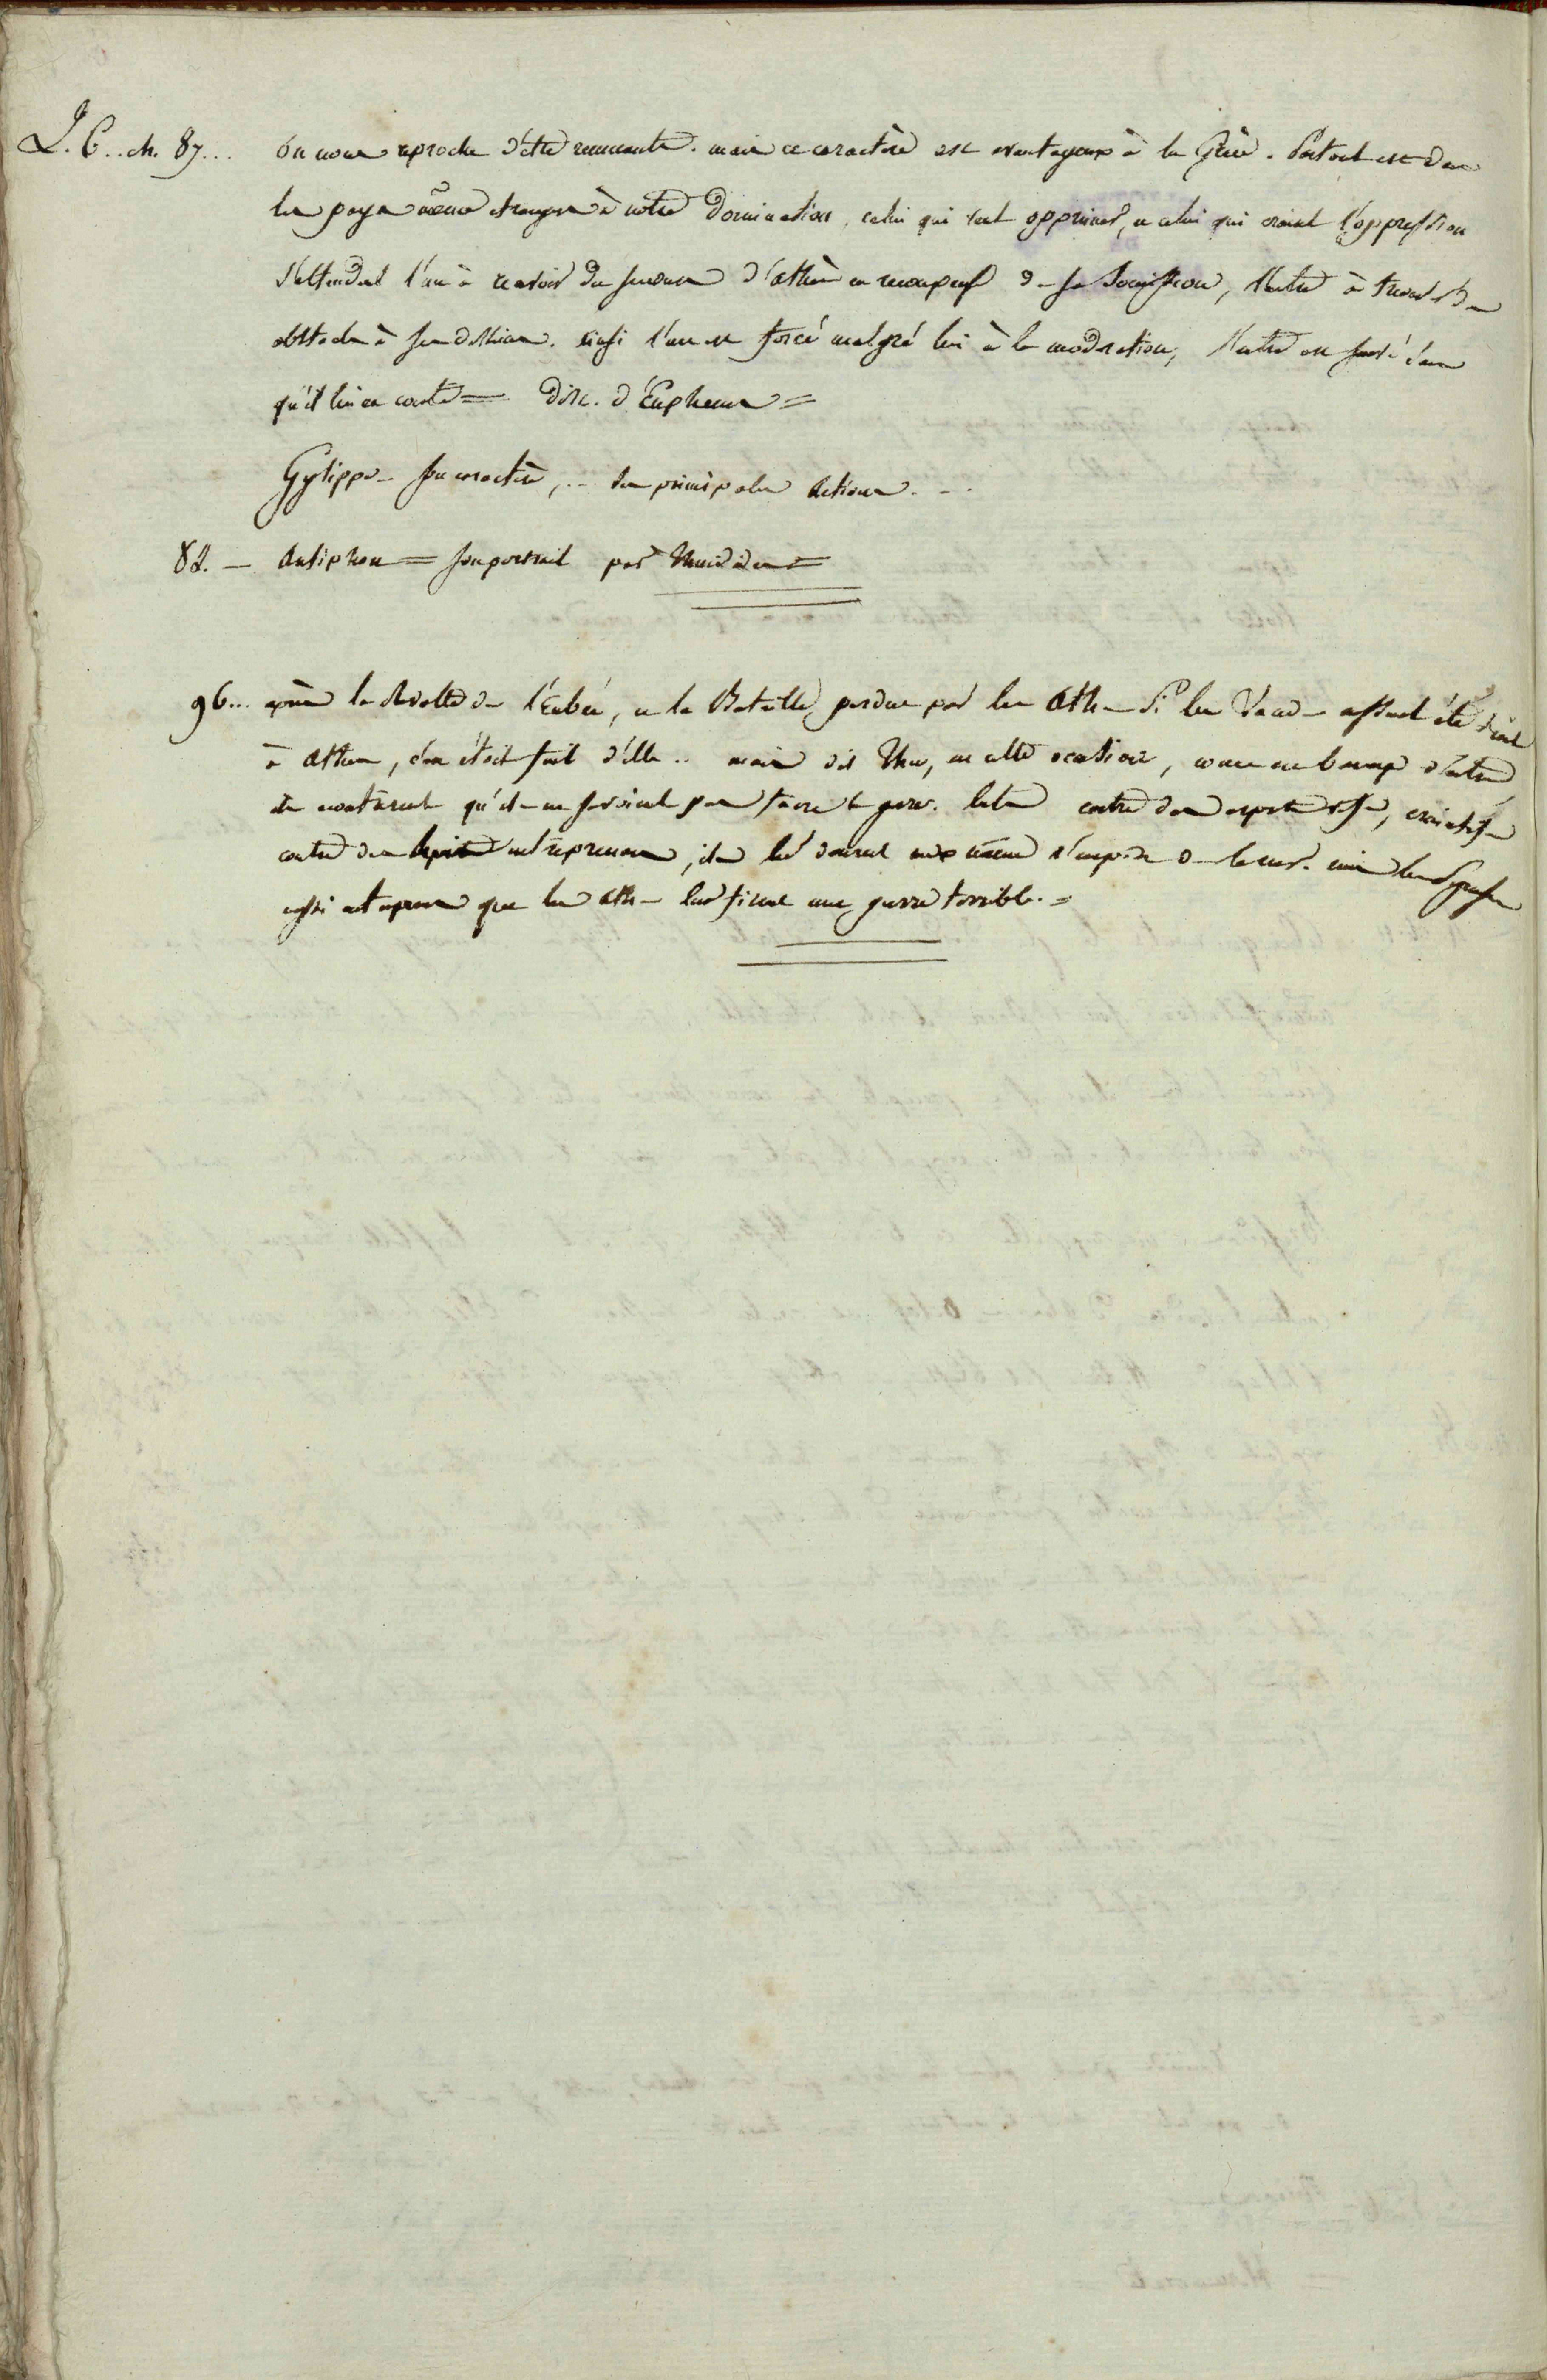 L. 6.. ch. 87... on nous reproche d'etre remuants. mais ce caractère est avantageux à la Grèce. Partout et dans
les pays même etrangers à notre Domination, celui qui veut opprimer, et celui qui craint l'oppression
s'attendent l'un à recevoir du secours d'Athènes en recompense de sa soumission, l'autre à trouver des
obstacles à ses desseins. ainsi l'un est forcé malgré lui à la moderation, l'autre est sauvé sans
qu'il lui en coute = Disc. d'Euphemus =
Gylippe - son caractère, .. ses principales actions. ..
82. - Antiphon = son portrait par Thucidides =
96... après la revolte de l'Eubée, et la Bataille perdue par les Ath - Si les Laced - été
à Athenes, c'en étoit fait d'elle .. mais dit Thu, en cette ocasion, comme en beaucoup d'autres
ils montrerent qu'ils ne savoient pas faire la guerre. lents contre des esprits vifs, craintifs
contre des esprits entreprenans, ils leur donnerent eux mêmes l'empire de la mer. mais les Syracusains
aussi entreprenans que les Ath - leur firent une guerre terrible. =